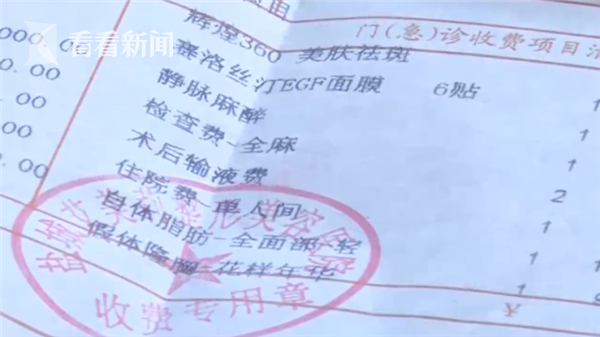 看看新闻
门(急)诊收费项目清
000.00
0.00
.00
.00
.00
辉煌360 美肤祛斑
赛洛丝汀EGF面膜 6贴 1
静脉麻醉 1
检查费-全麻 1
术后输液费 2
住院费-单人间 1
自体脂肪-全面部-轻 1 1
假体隆胸-花样年华 1
¥
收费专用章